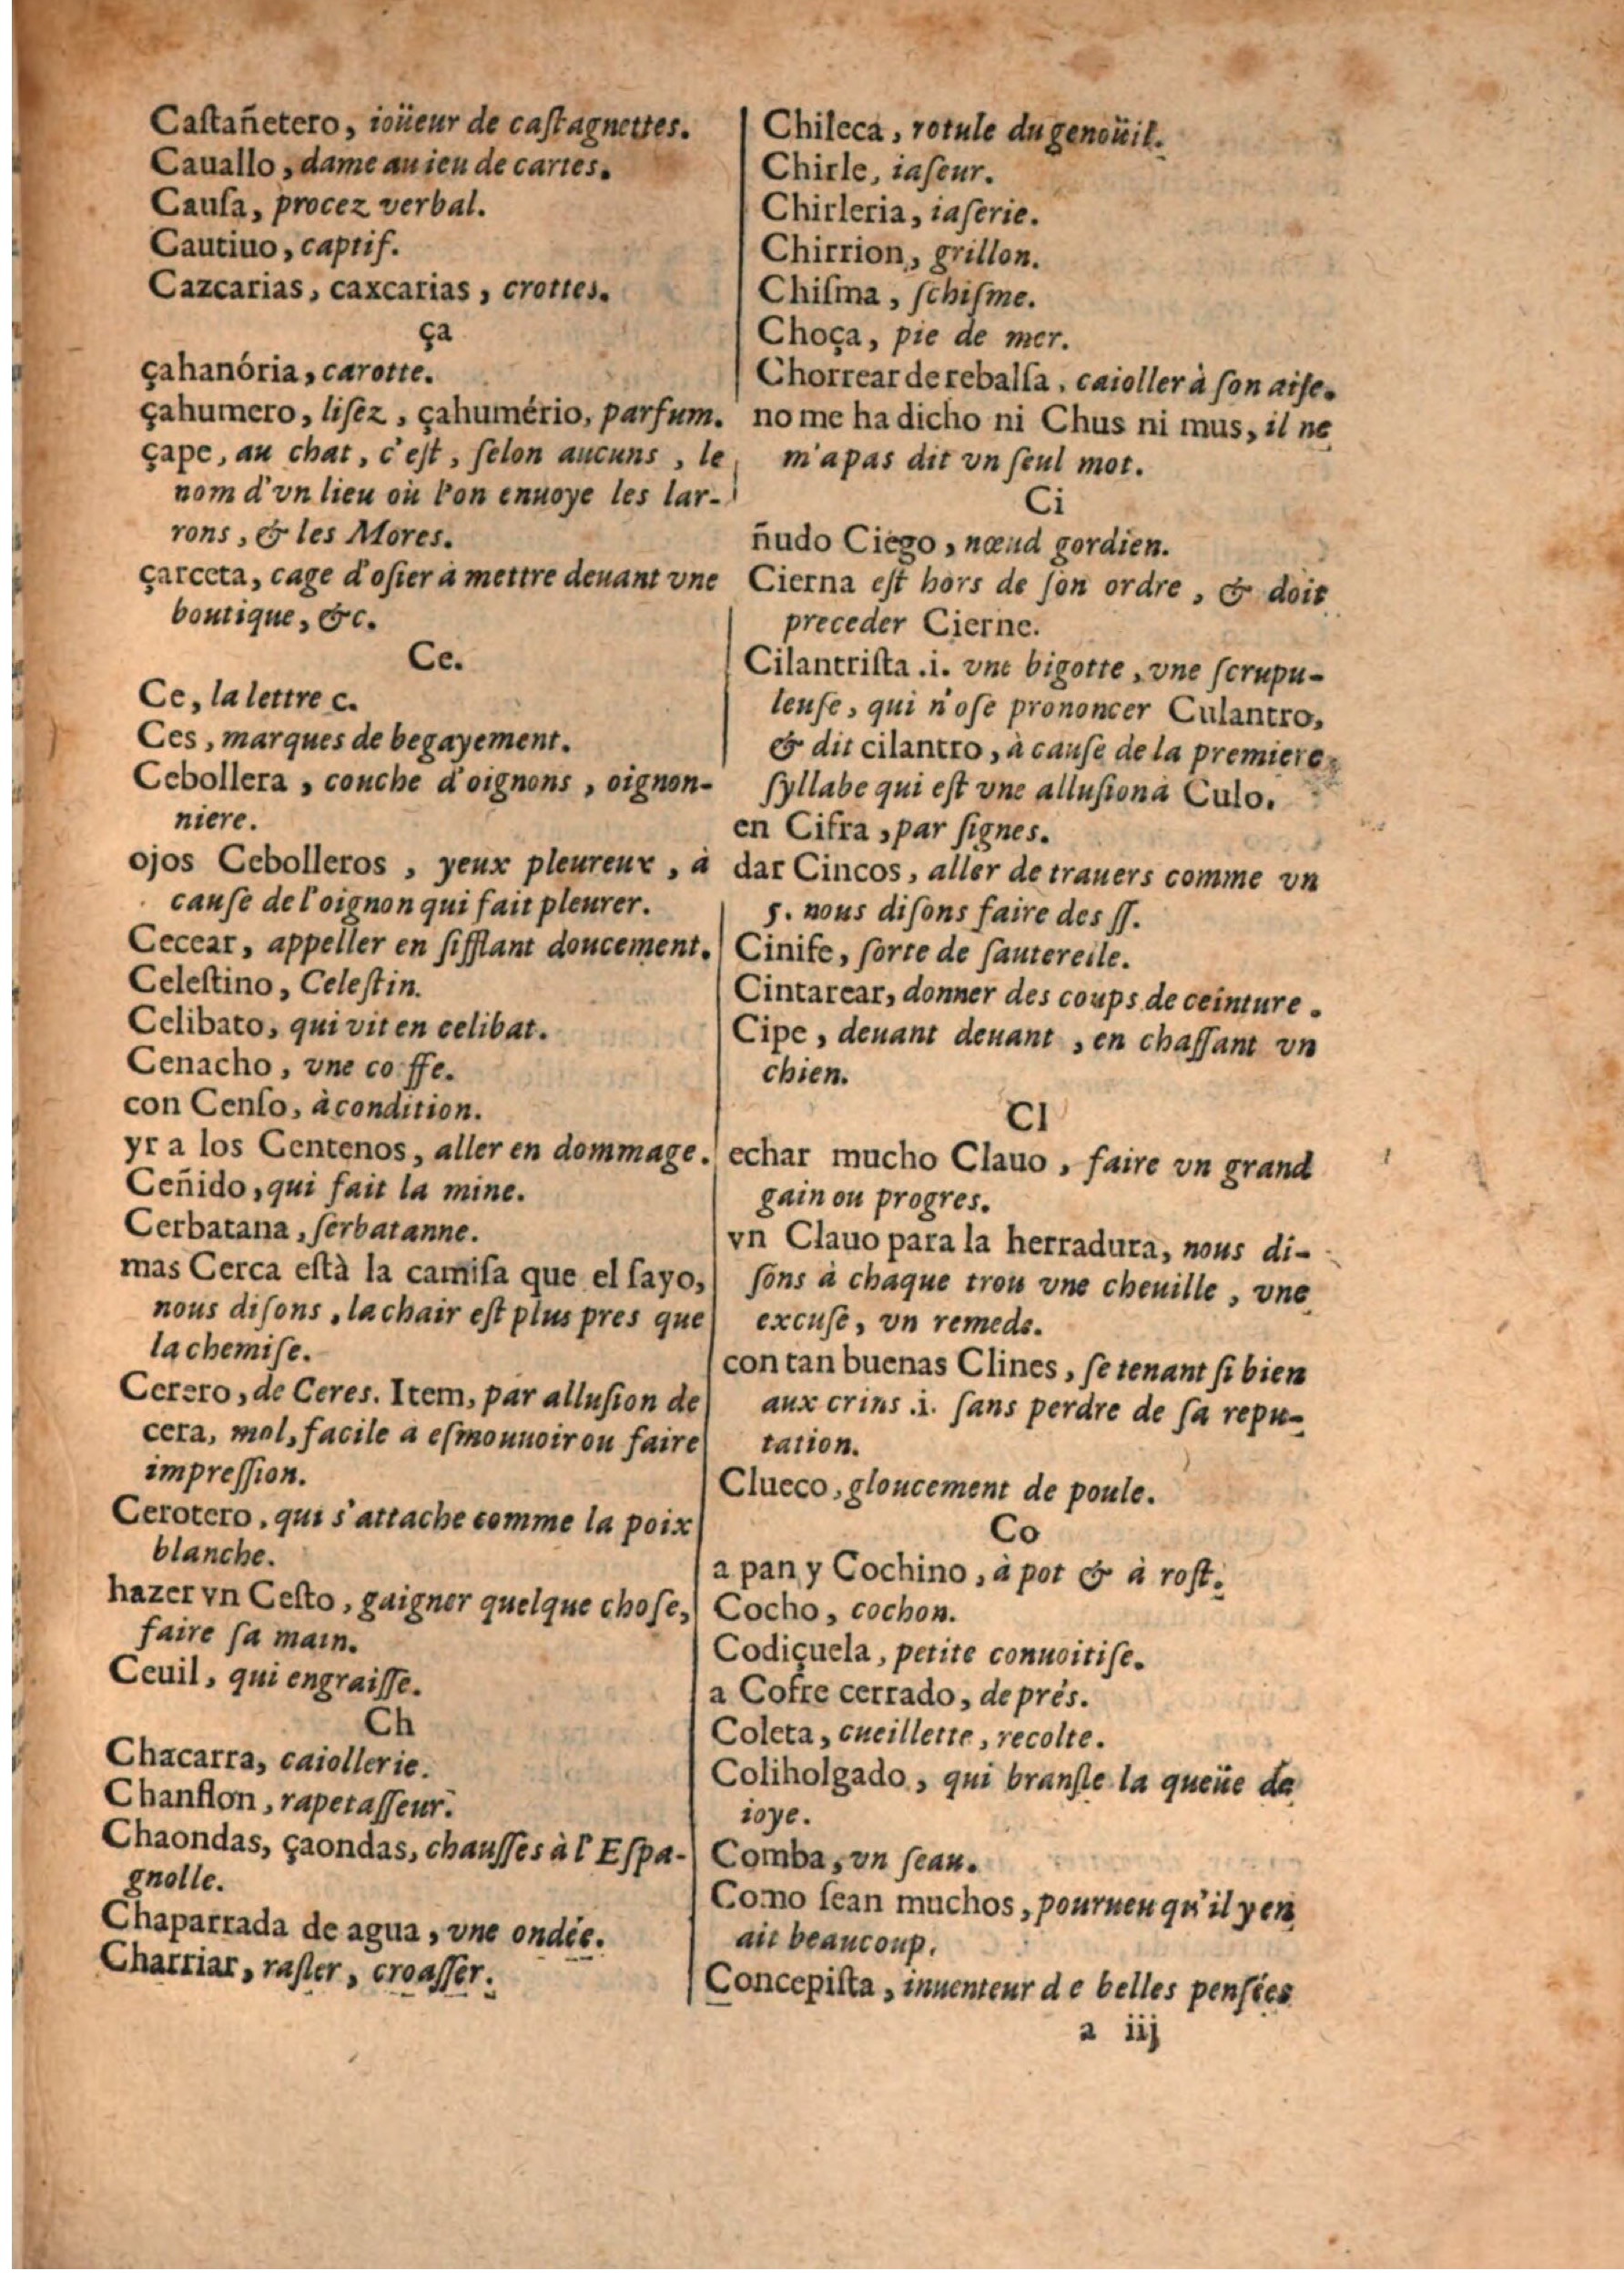 Caſtañetero, ioüeur de caſtagnettes.
Cauallo, dame au ieu de cartes.
Cauſa, procez verbal.
Cautiuo, captif.
Cazcarias, caxcarias, crottes.
ça
çahanória, carotte.
çahumero, liſez, çahumério, parfum.
çape, au chat, c'eſt, ſelon aucuns, le
nom d'vn lieu où l'on enuoye les lar-
rons, & les Mores.
çarceta, cage d'oſier à mettre deuant vne
boutique, &c.
Ce.
Ce, la lettre c.
Ces, marques de begayement.
Cebollera, couche d'oignons, oignon-
niere.
ojos Cebolleros, yeux pleureux, à
cauſe de l'oignon qui fait pleurer.
Cecear, appeller en ſifflant doucement.
Celeſtino, Celeſtin.
Celibato, qui vit en celibat.
Cenacho, vne coffe.
con Cenſo, à condition.
yr a los Centenos, aller en dommage.
Ceñido, qui fait la mine.
Cerbatana, ſerbatanne.
mas Cerca eſtà la camiſa que el ſayo,
nous diſons, la chair eſt plus pres que
la chemiſe.
Cerero, de Ceres. Item, par alluſion de
cera, mol, facile a eſmouuoir ou faire
impreſſion.
Cerotero, qui s'attache comme la poix
blanche.
hazer vn Ceſto, gaigner quelque choſe,
faire ſa main.
Ceuil, qui engraiſſe.
Ch
Chacarra, caiollerie.
Chanflon, rapetaſſeur.
Chaondas, çaondas, chauſſes à l'Eſpa-
gnolle.
Chaparrada de agua, vne ondée.
Charriar, raſler, croaſſer.
Chileca, rotule du genoüil.
Chirle, iaſeur.
Chirleria, iaſerie.
Chirrion, grillon.
Chiſma, ſchiſme.
Choça, pie de mer.
Chorrear de rebalſa, caioller à ſon aiſe.
no me ha dicho ni Chus ni mus, il ne
m'a pas dit vn ſeul mot.
Ci
ñudo Ciego, nœud gordien.
Cierna eſt hors de ſon ordre, & doit
preceder Cierne.
Cilantriſta .i. vne bigotte, vne ſcrupu-
leuſe, qui n'oſe prononcer Culantro,
& dit cilantro, à cauſe de la premiere
ſyllabe qui eſt vne alluſion à Culo.
en Cifra, par ſignes.
dar Cincos, aller de trauers comme vn
5. nous diſons faire des ſſ.
Cinife, ſorte de ſauterelle.
Cintarear, donner des coups de ceinture.
Cipe, deuant deuant, en chaſſant vn
chien.
Cl
echar mucho Clauo, faire vn grand
gain ou progres.
vn Clauo para la herradura, nous di-
ſons à chaque trou vne cheuille, vne
excuſe, vn remede.
con tan buenas Clines, ſe tenant ſi bien
aux crins .i. ſans perdre de ſa repu-
tation.
Clueco, gloucement de poule.
Co
a pan y Cochino, à pot & à roſt.
Cocho, cochon.
Codiçuela, petite conuoitiſe.
a Cofre cerrado, de prés.
Coleta, cueillette, recolte.
Coliholgado, qui branſle la queüe de
ioye.
Comba, vn ſeau.
Como ſean muchos, pourueu qu'il y en
ait beaucoup.
Concepiſta, inuenteur de belles penſées
a iij